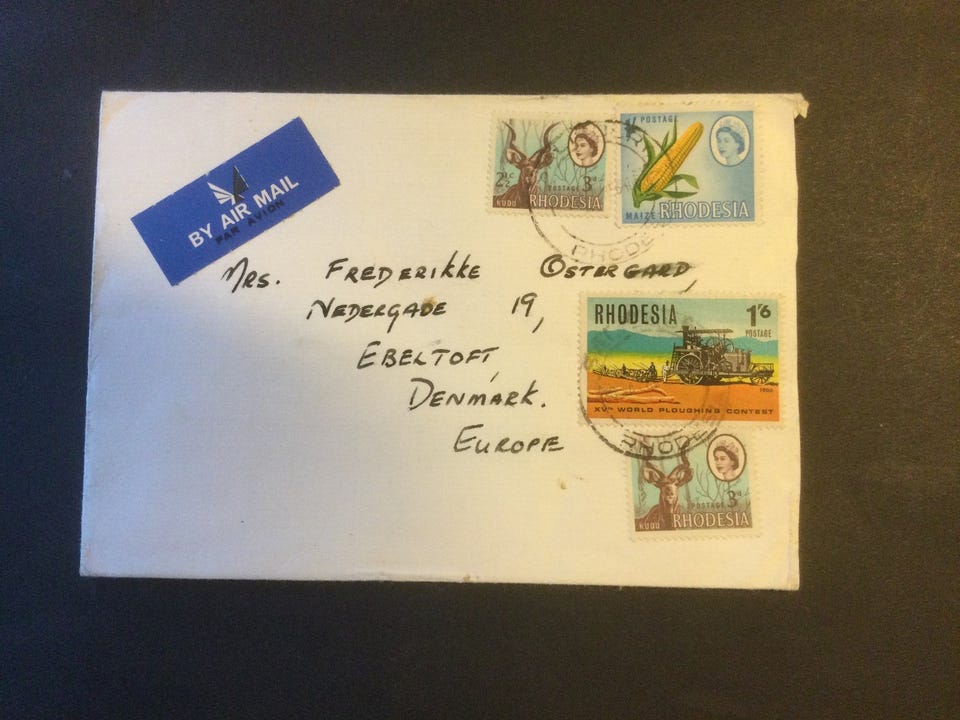 BY AIR MAIL
PAR AVION
2½c POSTAGE 3d
KUDU RHODESIA
1/- POSTAGE
MAIZE RHODESIA
RHODE
Mrs. FREDERIKKE OSTERGARD,
NEDERGADE 19,
EBELTOFT,
DENMARK.
EUROPE
RHODESIA 1'6
POSTAGE
1968
XVTH WORLD PLOUGHING CONTEST
RHODE
POSTAGE 3d
KUDU RHODESIA